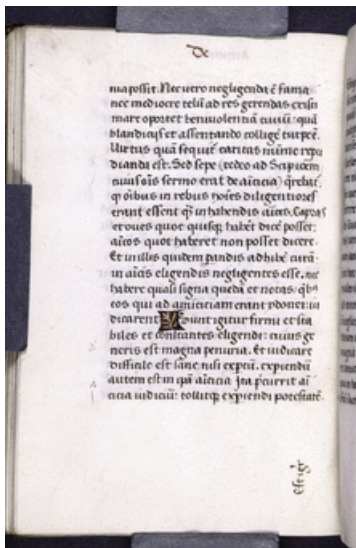 De
nia possit. Nec vero negligenda ē fama
nec mediocre telū ad res gerendas existi
mare oportet benivolentiā civiū: quā
blanditiis et assentando collige turpe ē.
Virtus quā sequit̄ caritas minīe repu
dianda est. Sed sepe (redeo ad Scipionem
cuius oīs sermo erat de amicicia) q̄rebat̄
q̄ oībus in rebus hoīes diligentiores
essent q̄ in habendis amīcis. Capras
et oves quot quisq̄ habēt dicē posset:
amīcos quot haberet non posset dicere.
Et in illis quidem pandis adhibē curā:
in amīcis eligendis negligentes esse. nec
habere quasi signa quedā et notas: qb̄
eos qui ad amiciciam erant ydonei: iu
dicarent Sunt igitur firmi et sta
biles et constantes eligendi: cuius ge
neris est magna penuria. Et iudicare
difficile est sane nisi exptū. expiendū
autem est in ipā amīcicia Ita p̄currit ami
cicia iudiciū: tollitq̄ expiendi potestatē.